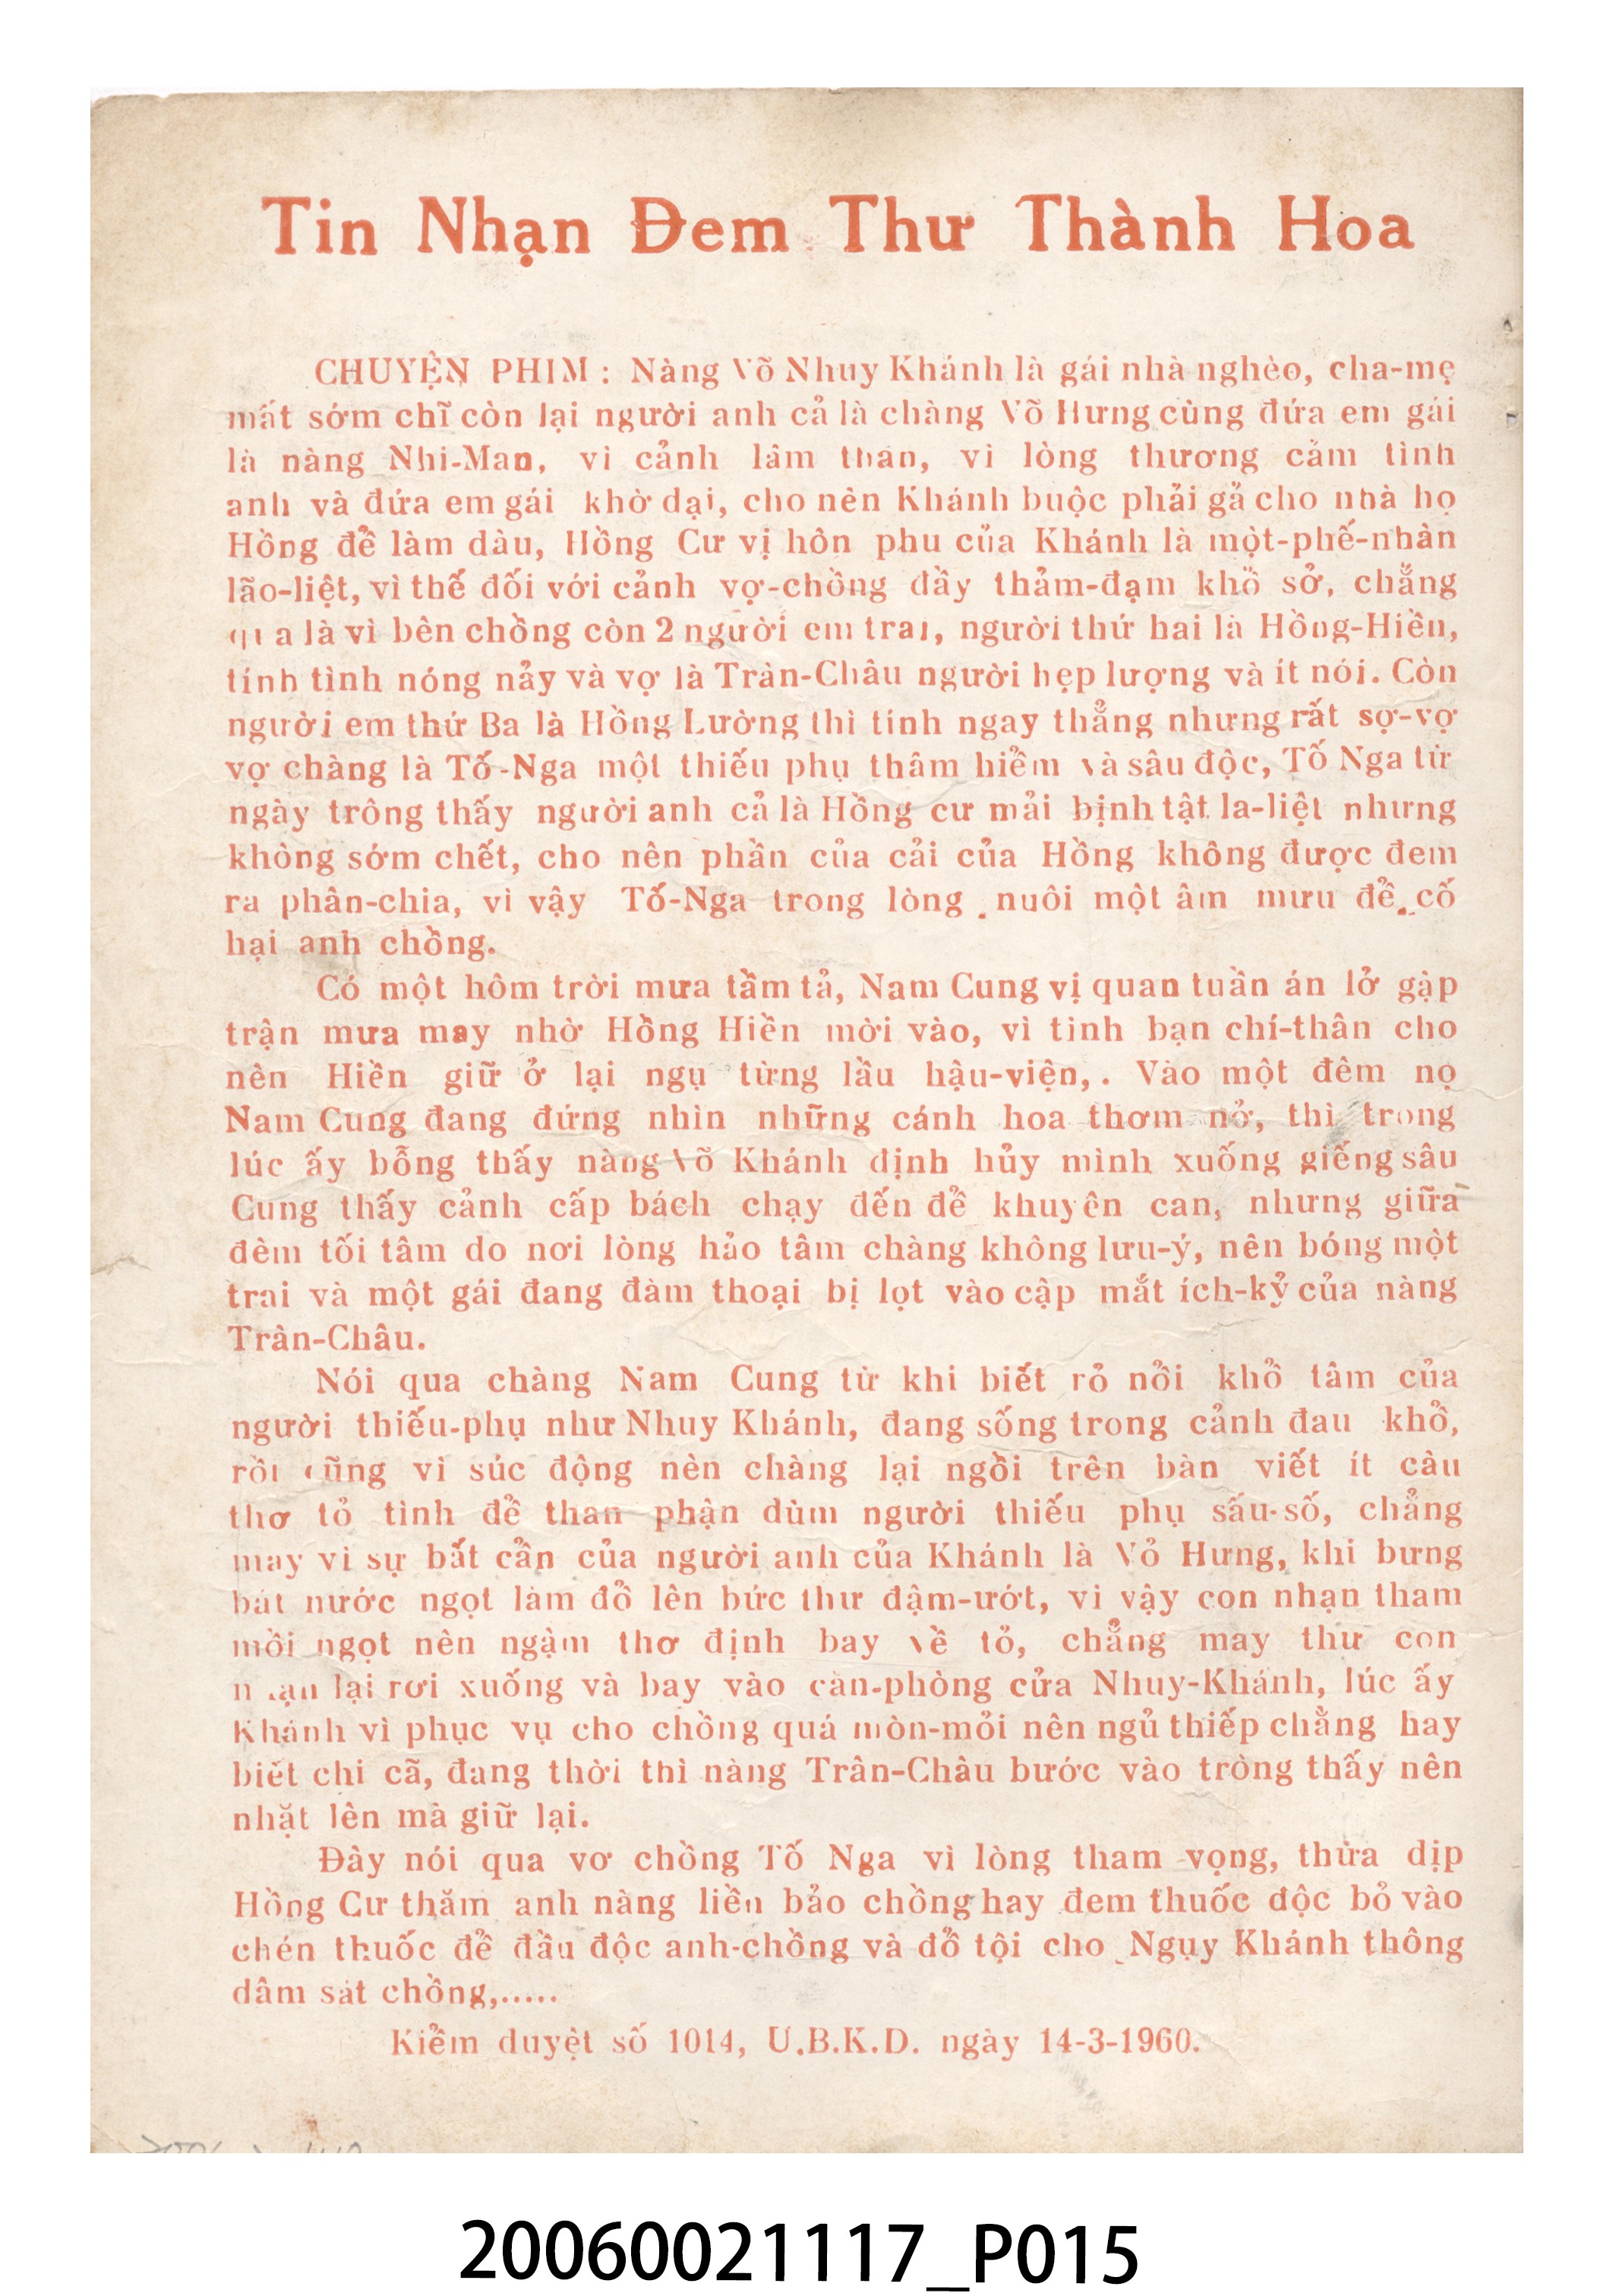 Tin Nhạn Đem Thư Thành Hoa
CHUYỆN PHIM : Nàng Võ Nhuy Khánh là gái nhà nghèo, cha-mẹ
mất sớm chĩ còn lại người anh cả là chàng Võ Hưng cùng đứa em gái
là nàng Nhi-Man, vì cảnh lâm thán, vì lòng thương cảm tình
anh và đứa em gái khờ dại, cho nên Khánh buộc phải gả cho nhà họ
Hồng để làm dàu, Hồng Cư vị hôn phu của Khánh là một-phế-nhàn
lão-liệt, vì thế đối với cảnh vợ-chồng đầy thảm-đạm khổ sở, chẳng
qua là vì bên chồng còn 2 người em trai, người thứ hai là Hồng-Hiền,
tính tình nóng nảy và vợ là Tràn-Châu người hẹp lượng và ít nói. Còn
người em thứ Ba là Hồng Lường thì tính ngay thẳng nhưng rất sợ-vợ
vợ chàng là Tố-Nga một thiếu phụ thâm hiểm và sâu độc, Tố Nga từ
ngày trông thấy người anh cả là Hồng cư mải bịnh tật la-liệt nhưng
không sớm chết, cho nên phần của cải của Hồng không được đem
ra phân-chia, vì vậy Tố-Nga trong lòng nuôi một âm mưu để cố
hại anh chồng.
Có một hôm trời mưa tầm tả, Nam Cung vị quan tuần án lở gặp
trận mưa may nhờ Hồng Hiền mời vào, vì tình bạn chí-thân cho
nên Hiền giữ ở lại ngụ từng lầu hậu-viện,. Vào một đêm nọ
Nam Cung đang đứng nhìn những cánh hoa thơm nở, thì trong
lúc ấy bỗng thấy nàng Võ Khánh định hủy mình xuống giếng sâu
Cung thấy cảnh cấp bách chạy đến để khuyên can, nhưng giữa
đêm tối tâm do nơi lòng hảo tâm chàng không lưu-ý, nên bóng một
trai và một gái đang đàm thoại bị lọt vào cập mắt ích-kỷ của nàng
Trân-Châu.
Nói qua chàng Nam Cung từ khi biết rỏ nổi khổ tâm của
người thiếu-phụ như Nhuy Khánh, đang sống trong cảnh đau khổ,
rồi cũng vì súc động nèn chàng lại ngồi trên bàn viết ít câu
thơ tỏ tình để than phận dùm người thiếu phụ sấu-số, chẳng
may vì sự bất cẩn của người anh của Khánh là Vỏ Hưng, khi bưng
bát nước ngọt làm đổ lên bức thư đậm-ướt, vì vậy con nhạn tham
mồi ngọt nên ngậm thơ định bay về tỏ, chẳng may thư con
nhạn lại rơi xuống và bay vào căn-phòng cửa Nhuy-Khánh, lúc ấy
Khánh vì phục vụ cho chồng quá mòn-mỏi nên ngủ thiếp chẳng hay
biết chi cã, đang thời thì nàng Trân-Châu bước vào tròng thấy nên
nhặt lên mà giữ lại.
Đày nói qua vơ chồng Tố Nga vì lòng tham vọng, thừa dịp
Hồng Cư thăm anh nàng liền bảo chồng hay đem thuốc độc bỏ vào
chén thuốc để đầu độc anh-chồng và đổ tội cho Ngụy Khánh thông
dâm sát chồng,.....
Kiểm duyệt số 1014, U.B.K.D. ngày 14-3-1960.
20060021117_P015